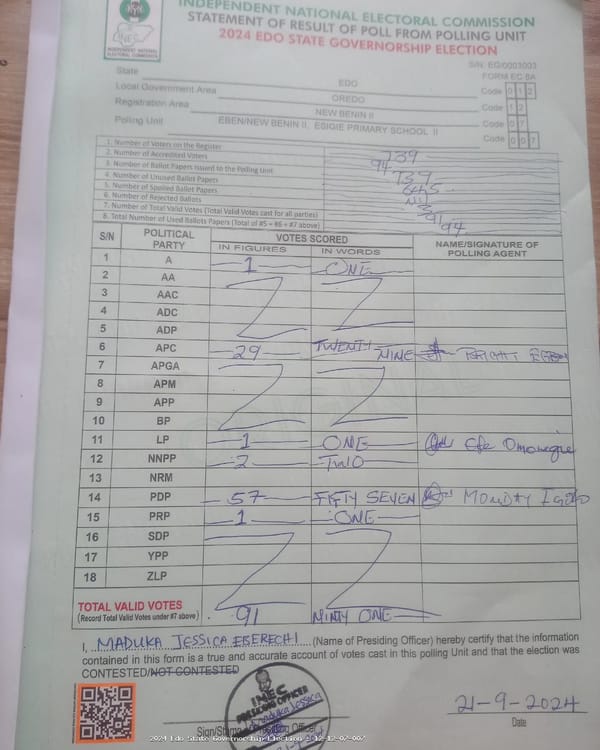 INDEPENDENT NATIONAL ELECTORAL COMMISSION
STATEMENT OF RESULT OF POLL FROM POLLING UNIT
2024 EDO STATE GOVERNORSHIP ELECTION
INEC
INDEPENDENT NATIONAL ELECTORAL COMMISSION
S/N: EG/0003003
FORM EC 8A
State EDO Code 0 1 2
Local Government Area OREDO Code 1 2
Registration Area NEW BENIN II Code 0 7
Polling Unit EBEN/NEW BENIN II, ESIGIE PRIMARY SCHOOL II Code 0 0 7
1. Number of Voters on the Register 739
2. Number of Accredited Voters 94
3. Number of Ballot Papers Issued to the Polling Unit 739
4. Number of Unused Ballot Papers 645
5. Number of Spoiled Ballot Papers
6. Number of Rejected Ballots 3
7. Number of Total Valid Votes (Total Valid Votes cast for all parties) 91
8. Total Number of Used Ballots Papers (Total of #5 + #6 + #7 above) 94
S/N POLITICAL PARTY VOTES SCORED NAME/SIGNATURE OF POLLING AGENT
IN FIGURES IN WORDS
1 A 1 ONE
2 AA
3 AAC
4 ADC
5 ADP
6 APC 29 TWENTY NINE BRIGHT
7 APGA
8 APM
9 APP
10 BP
11 LP 1 ONE Omoregie
12 NNPP 2 TWO
13 NRM
14 PDP 57 FIFTY SEVEN MONDAY
15 PRP 1 ONE
16 SDP
17 YPP
18 ZLP
TOTAL VALID VOTES
(Record Total Valid Votes under #7 above) 91 NINTY ONE
I, MADUKA JESSICA EBERECHI (Name of Presiding Officer) hereby certify that the information
contained in this form is a true and accurate account of votes cast in this polling Unit and that the election was
CONTESTED/NOT CONTESTED
INEC
PRESIDING OFFICER
Maduka Jessica
21-9-2024
Date